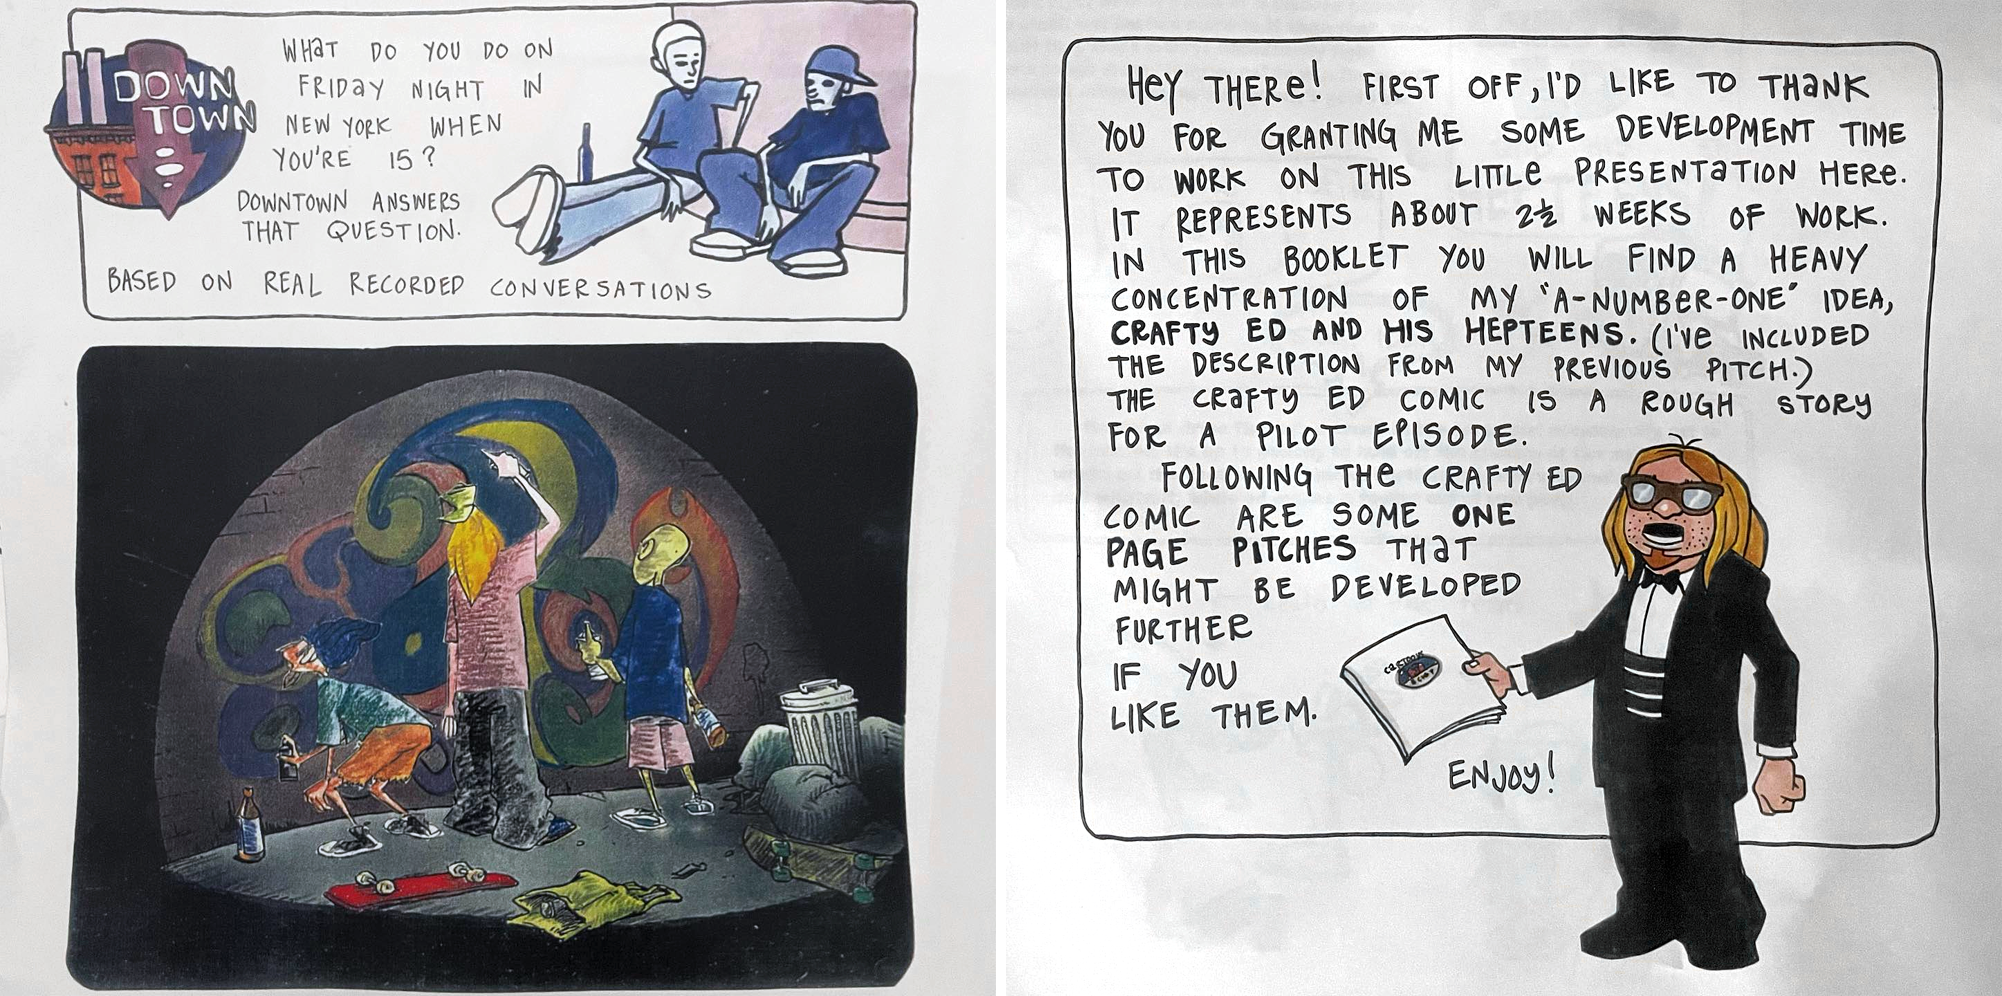 DOWN
TOWN
WHAT DO YOU DO ON
FRIDAY NIGHT IN
NEW YORK WHEN
YOU'RE 15?
DOWNTOWN ANSWERS
THAT QUESTION.
BASED ON REAL RECORDED CONVERSATIONS
HEY THERE! FIRST OFF, I'D LIKE TO THANK
YOU FOR GRANTING ME SOME DEVELOPMENT TIME
TO WORK ON THIS LITTLE PRESENTATION HERE.
IT REPRESENTS ABOUT 2½ WEEKS OF WORK.
IN THIS BOOKLET YOU WILL FIND A HEAVY
CONCENTRATION OF MY "A-NUMBER-ONE" IDEA,
CRAFTY ED AND HIS HEPTEENS. (I'VE INCLUDED
THE DESCRIPTION FROM MY PREVIOUS PITCH.)
THE CRAFTY ED COMIC IS A ROUGH STORY
FOR A PILOT EPISODE.
FOLLOWING THE CRAFTY ED
COMIC ARE SOME ONE
PAGE PITCHES THAT
MIGHT BE DEVELOPED
FURTHER
IF YOU
LIKE THEM.
ENJOY!